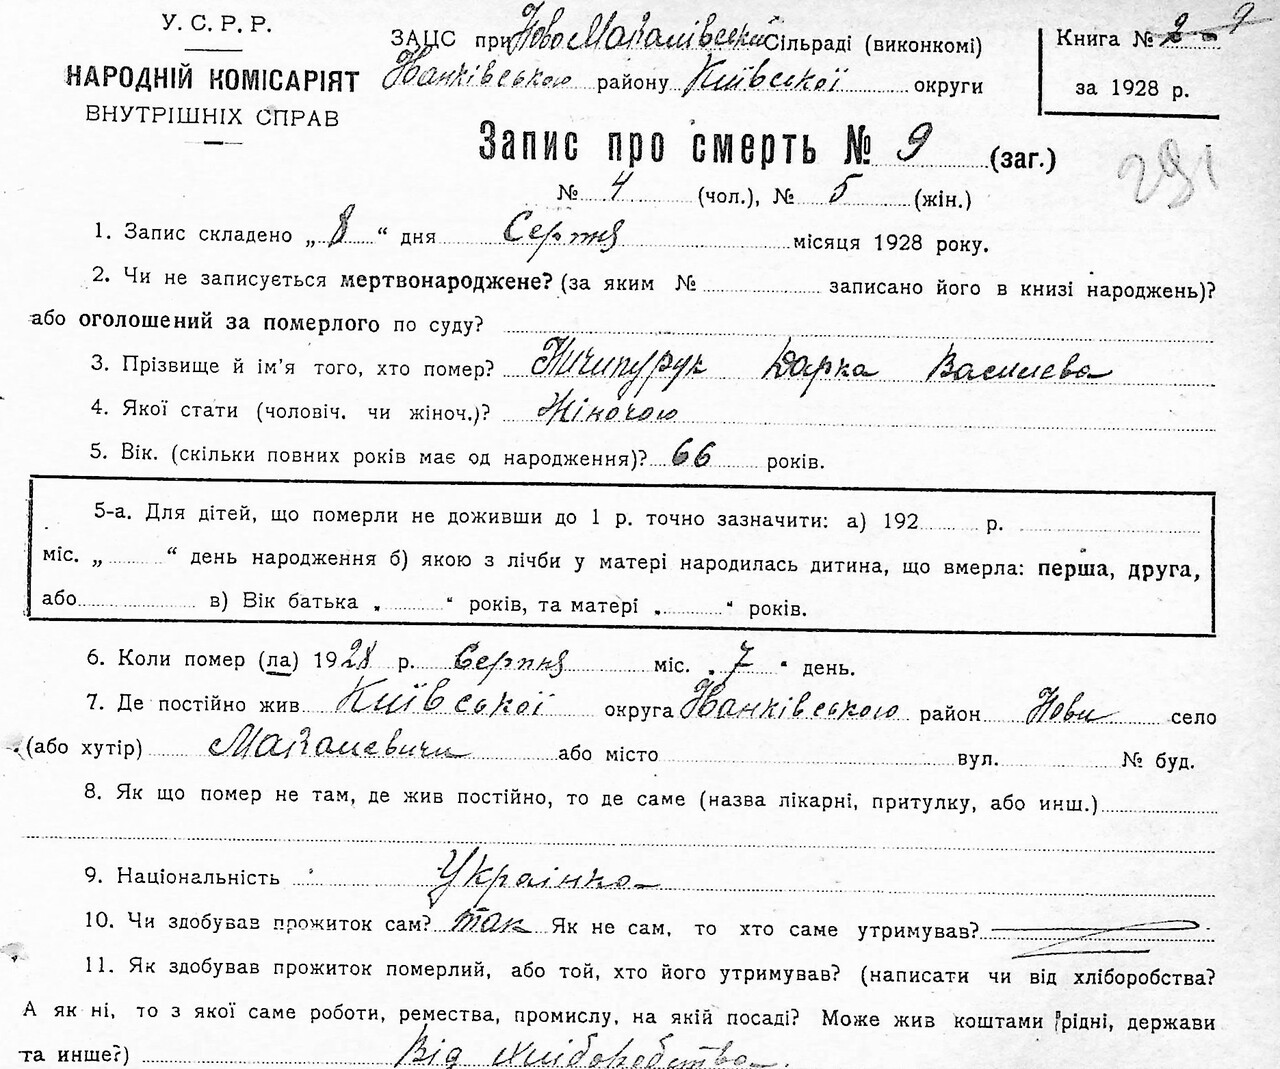 У. С. Р. Р.
НАРОДНІЙ КОМІСАРІЯТ
ВНУТРІШНІХ СПРАВ
ЗАЦС при Ново Макалівській Сільраді (виконкомі)
Іванківською району Київської округи
Книга № 2
за 1928 р.
Запис про смерть № 9 (заг.)
№ 4 (чол.), № 5 (жін.)
291
1. Запис складено „ 8 “ дня Серпня місяця 1928 року.
2. Чи не записується мертвонароджене? (за яким № записано його в книзі народжень)?
або оголошений за померлого по суду?
3. Прізвище й ім’я того, хто помер? Ничипурук Дарка Василева
4. Якої стати (чоловіч. чи жіноч.)? Жіночою
5. Вік. (скільки повних років має од народження)? 66 років.
5-а. Для дітей, що померли не доживши до 1 р. точно зазначити: а) 192 р.
міс. „ “ день народження б) якою з лічби у матері народилась дитина, що вмерла: перша, друга,
або в) Вік батька „ “ років, та матері „ “ років.
6. Коли помер (ла) 1928 р. Серпня міс. „ 7 “ день.
7. Де постійно жив Київської округа Іванківською район Нови село
(або хутір) Макалевичи або місто вул. № буд.
8. Як що помер не там, де жив постійно, то де саме (назва лікарні, притулку, або инш.)
9. Національність Украінка
10. Чи здобував прожиток сам? так Як не сам, то хто саме утримував?
11. Як здобував прожиток померлий, або той, хто його утримував? (написати чи від хліборобства?
А як ні, то з якої саме роботи, ремества, промислу, на якій посаді? Може жив коштами рідні, держави
та инше?) Від хліборобства.